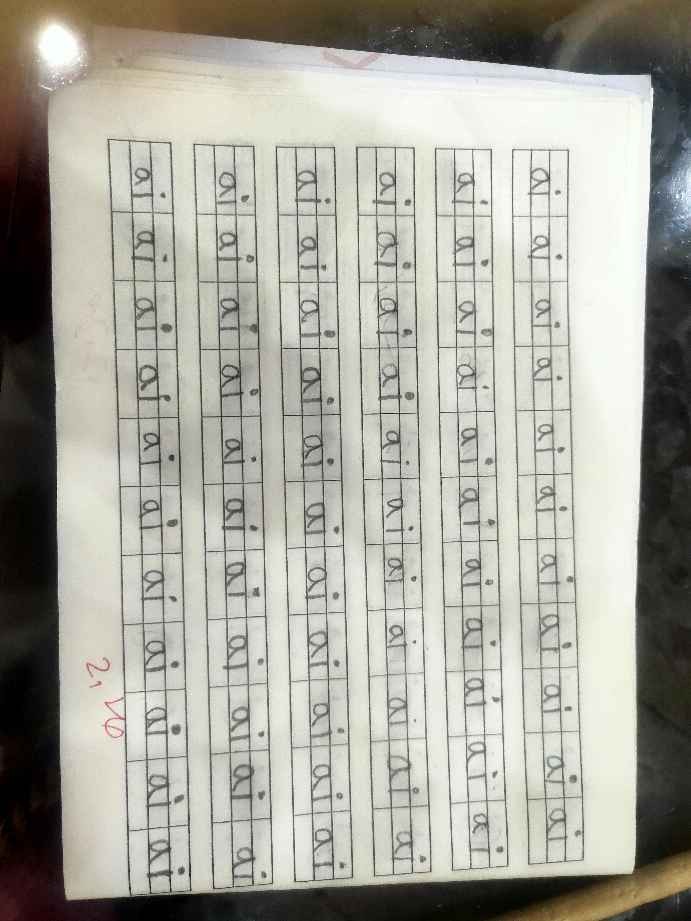 ai ai ai ai ai ai ai ai ai ai ai
ai ai ai ai ai ai ai ai ai ai ai
ai ai ai ai ai ai ai ai ai ai ai
ai ai ai ai ai ai ai ai ai ai ai
ai ai ai ai ai ai ai ai ai ai ai
ai ai ai ai ai ai ai ai ai ai ai